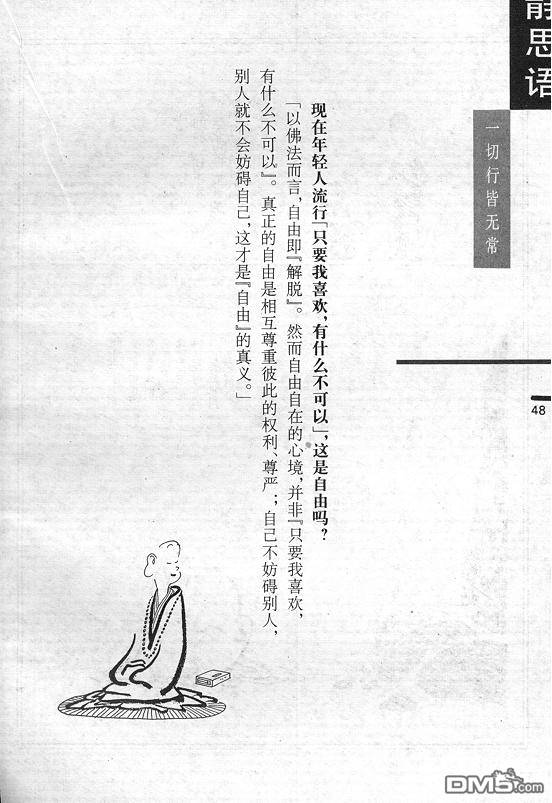 静思语
一切行皆无常
48
现在年轻人流行「只要我喜欢,有什么不可以」,这是自由吗?
「以佛法而言,自由即『解脱』。然而自由自在的心境,并非『只要我喜欢,
有什么不可以』。真正的自由是相互尊重彼此的权利、尊严;自己不妨碍别人,
别人就不会妨碍自己,这才是『自由』的真义。」
DM5.com